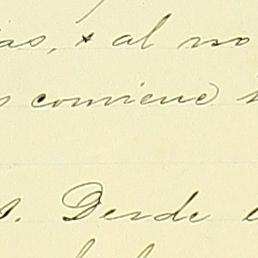 as, x al no
conviene
s. Desde